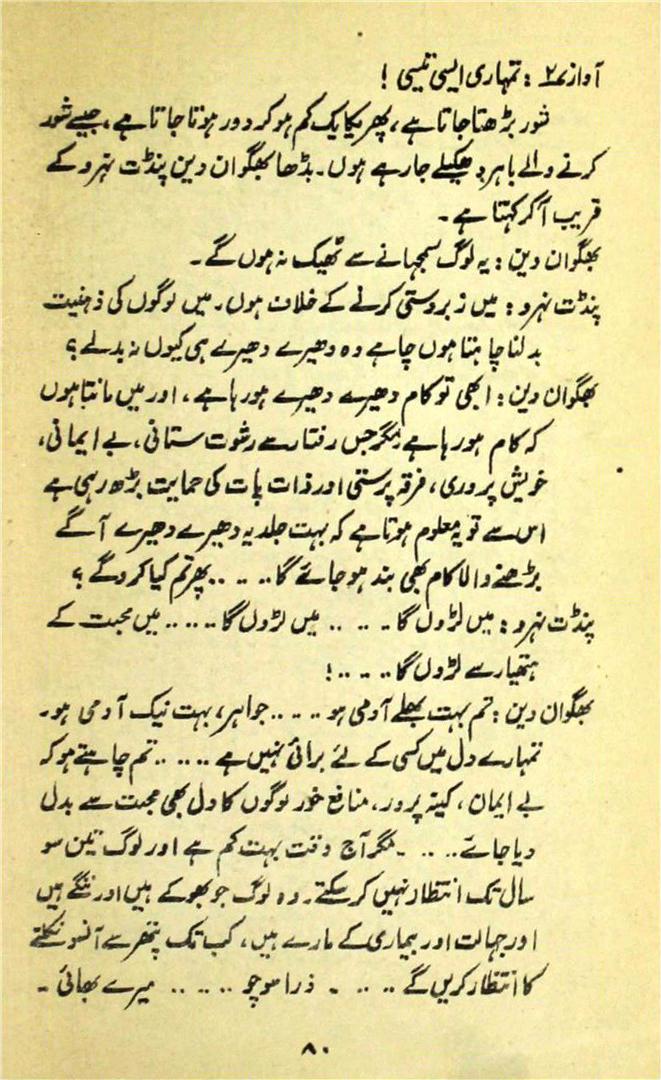 آواز ۲۷ : تمہاری ایسی تیسی !
شور بڑھتا جاتا ہے، پھر یکایک کم ہو کر دور ہوتا جاتا ہے، جیسے شور
کرنے والے باہر دھکیلے جا رہے ہوں۔ بڈھا بھگوان دین پنڈت نہرو کے
قریب آ کر کہتا ہے۔
بھگوان دین : یہ لوگ سمجھانے سے ٹھیک نہ ہوں گے۔
پنڈت نہرو : میں زبردستی کرنے کے خلاف ہوں۔ میں لوگوں کی ذہنیت
بدلنا چاہتا ہوں چاہے وہ دھیرے دھیرے ہی کیوں نہ بدلے ؟
بھگوان دین : ابھی تو کام دھیرے دھیرے ہو رہا ہے، اور میں مانتا ہوں
کہ کام ہو رہا ہے مگر جس رفتار سے رشوت ستانی، بے ایمانی،
خویش پروری، فرقہ پرستی اور ذات پات کی حمایت بڑھ رہی ہے
اس سے تو یہ معلوم ہوتا ہے کہ بہت جلد یہ دھیرے دھیرے آگے
بڑھنے والا کام بھی بند ہو جائے گا ..... پھر تم کیا کرو گے ؟
پنڈت نہرو : میں لڑوں گا ..... میں لڑوں گا ..... میں محبت کے
ہتھیار سے لڑوں گا ..... !
بھگوان دین : تم بہت بھلے آدمی ہو ..... جواہر، بہت نیک آدمی ہو۔
تمہارے دل میں کسی کے لئے برائی نہیں ہے ..... تم چاہتے ہو کہ
بے ایمان، کینہ پرور، منافع خور لوگوں کا دل بھی محبت سے بدل
دیا جائے ..... مگر آج وقت بہت کم ہے اور لوگ تین سو
سال تک انتظار نہیں کر سکتے۔ وہ لوگ جو بھوکے ہیں اور ننگے ہیں
اور جہالت اور بیماری کے مارے ہیں، کب تک پتھر سے آنسو نکلنے
کا انتظار کریں گے ..... ذرا سوچو ..... میرے بھائی ۔
۸۰